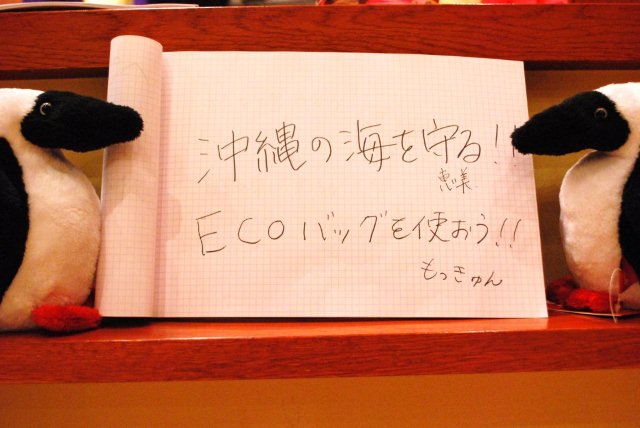 沖縄の海を守る!!
恵美
ECOバッグを使おう!!
もっきゅん